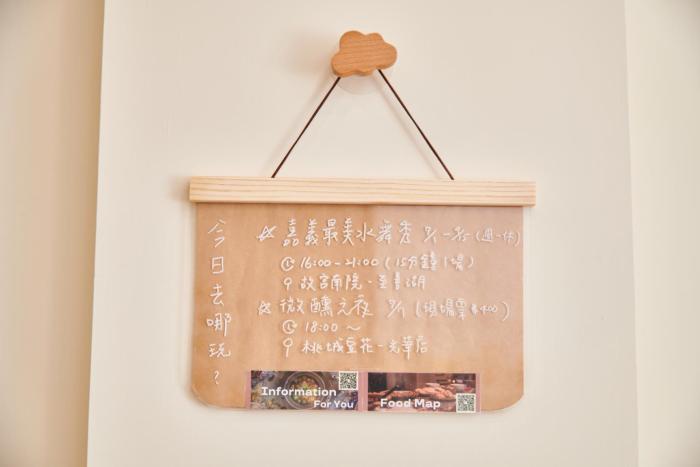 今日去哪玩?
☆ 嘉義最美水舞秀 (週一休)
16:00-21:00 (15分鐘1場)
故宮南院-至善湖
☆ 微醺之夜 (現場票$400)
18:00 ~
桃城豆花-光華店
Information
For You
Food Map